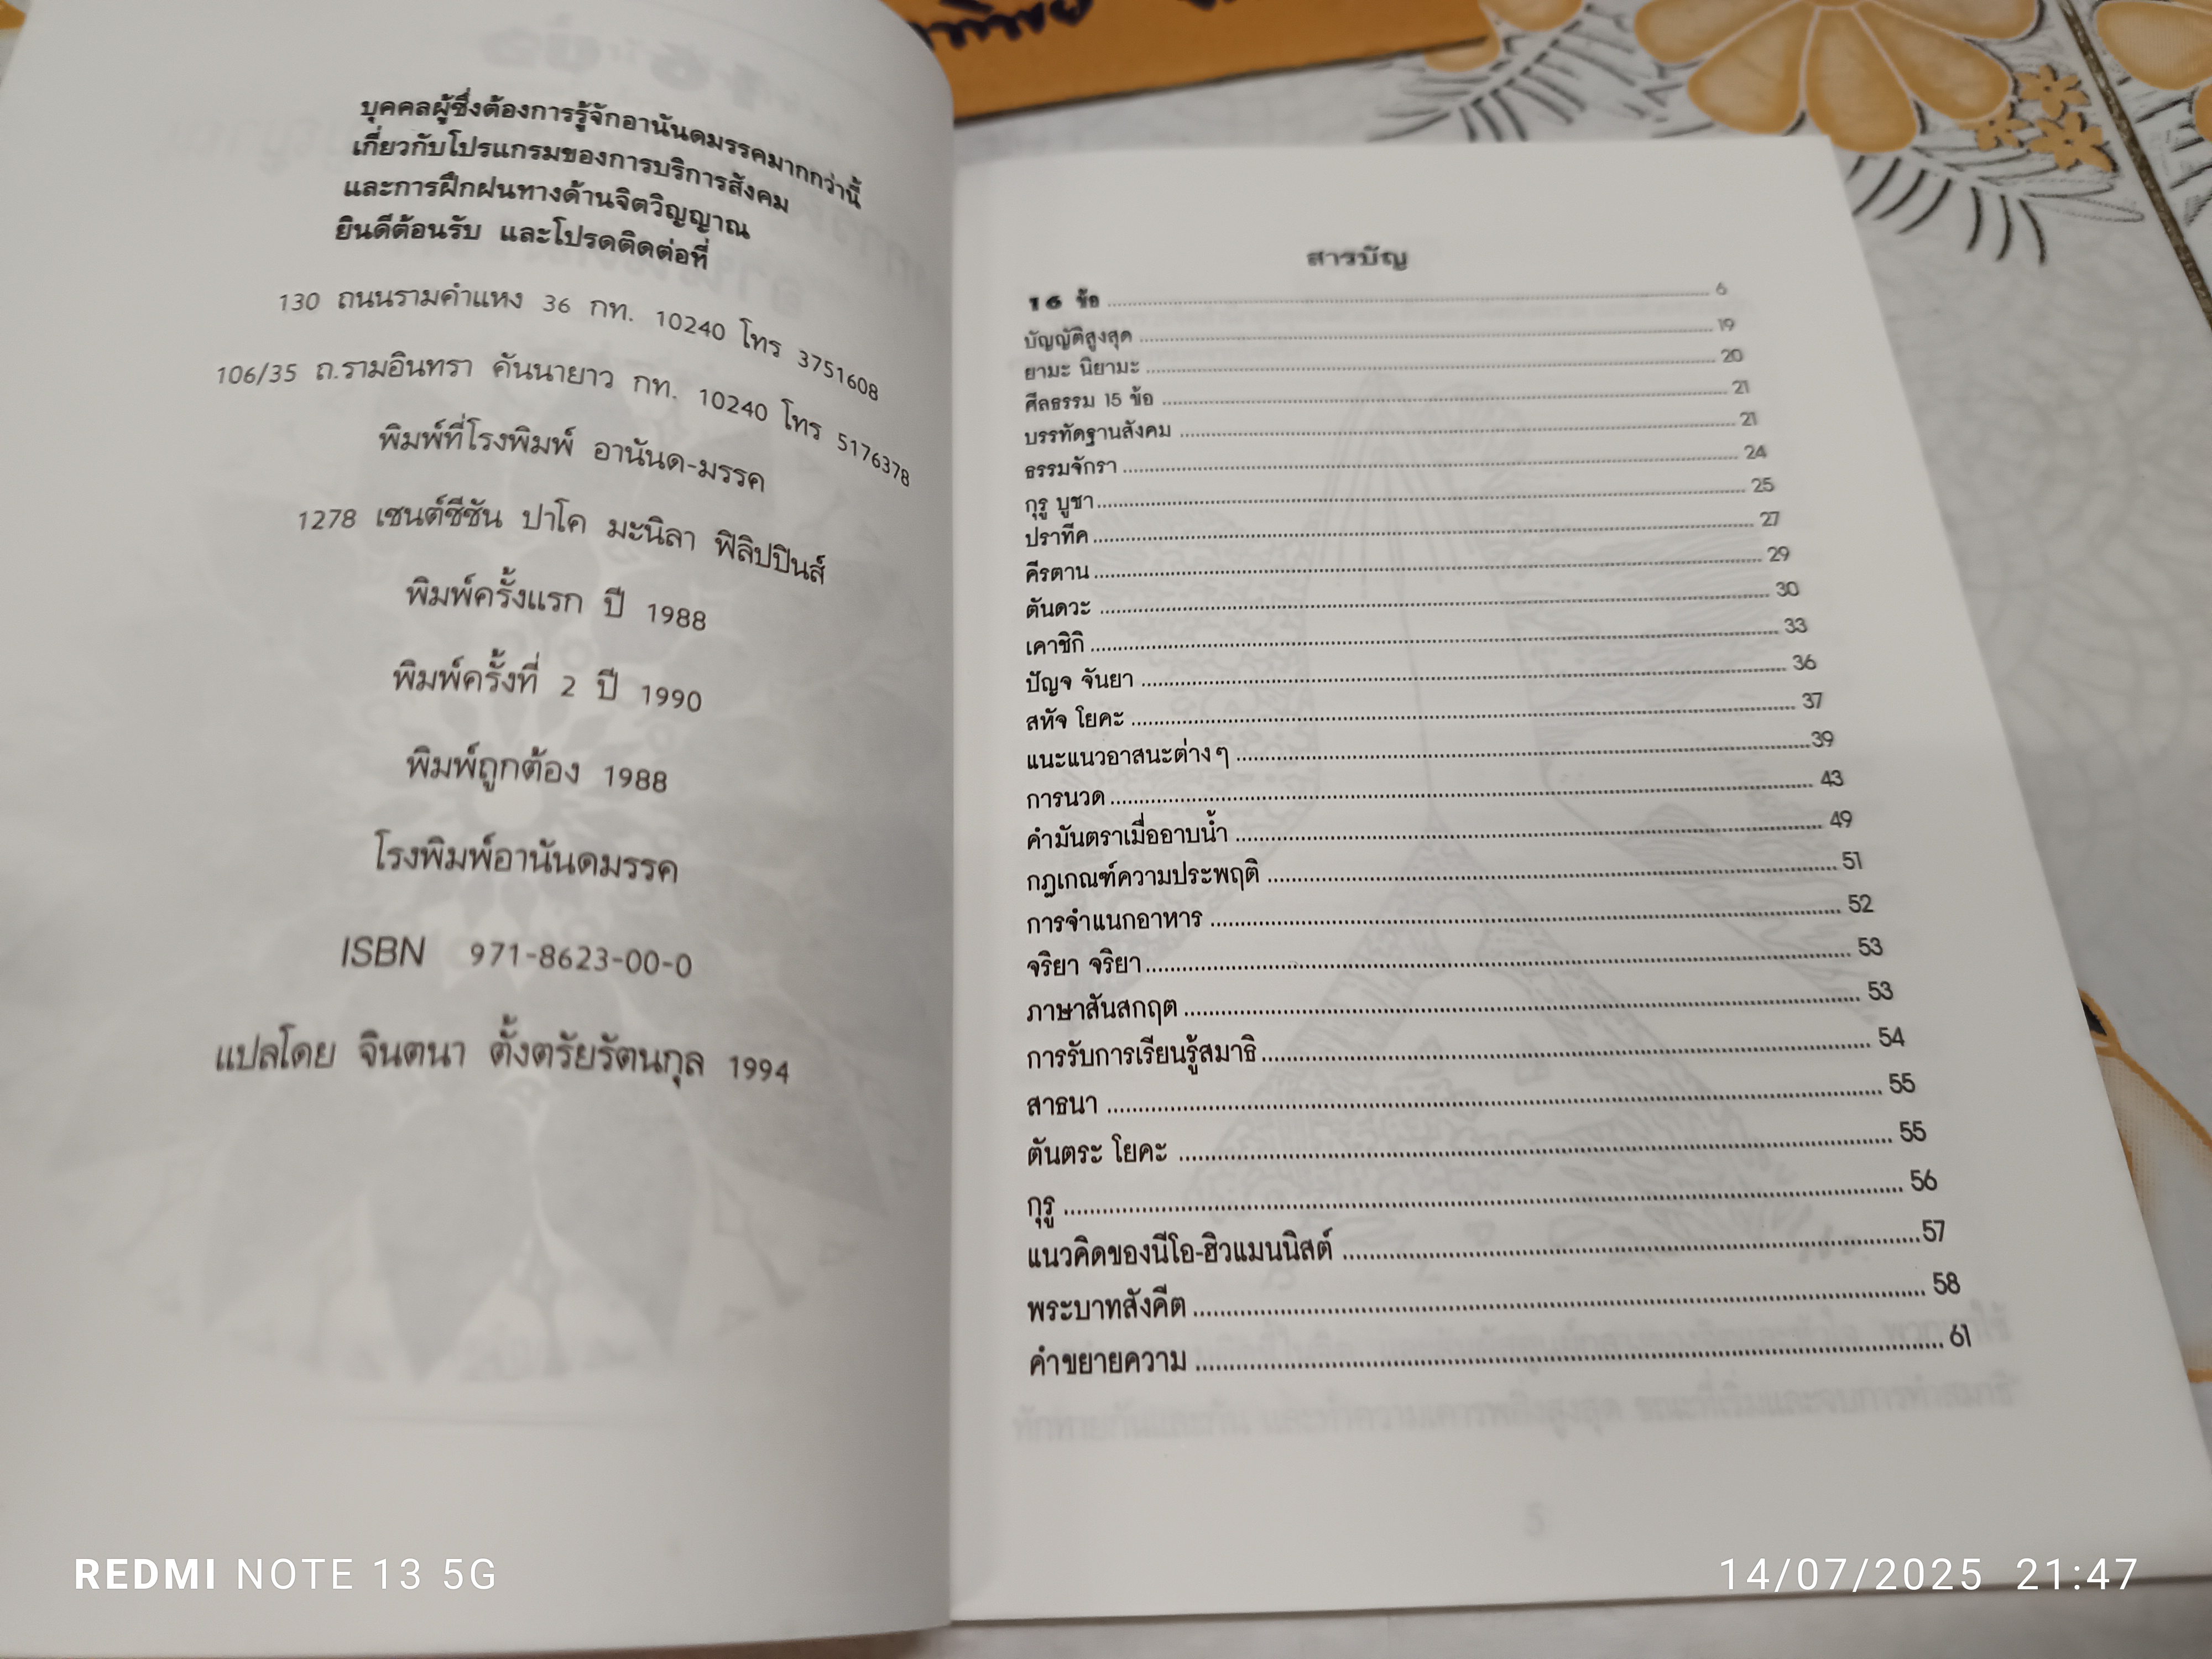 บุคคลผู้ซึ่งต้องการรู้จักอานันดมรรคมากกว่านี้
เกี่ยวกับโปรแกรมของการบริการสังคม
และการฝึกฝนทางด้านจิตวิญญาณ
ยินดีต้อนรับ และโปรดติดต่อที่
130 ถนนรามคำแหง 36 กท. 10240 โทร 3751608
106/35 ถ.รามอินทรา คันนายาว กท. 10240 โทร 5176378
พิมพ์ที่โรงพิมพ์ อานันด-มรรค
1278 เซนต์ซีซัน ปาโค มะนิลา ฟิลิปปินส์
พิมพ์ครั้งแรก ปี 1988
พิมพ์ครั้งที่ 2 ปี 1990
พิมพ์ถูกต้อง 1988
โรงพิมพ์อานันดมรรค
ISBN 971-8623-00-0
แปลโดย จินตนา ตั้งตรัยรัตนกุล 1994
สารบัญ
16 ข้อ 6
บัญญัติสูงสุด 19
ยามะ นิยามะ 20
ศีลธรรม 15 ข้อ 21
บรรทัดฐานสังคม 21
ธรรมจักรา 24
กุรู บูชา 25
ปราทีค 27
คีรตาน 29
ตันดวะ 30
เคาชิกิ 33
ปัญจ จันยา 36
สหัจ โยคะ 37
แนะแนวอาสนะต่างๆ 39
การนวด 43
คำมันตราเมื่ออาบน้ำ 49
กฎเกณฑ์ความประพฤติ 51
การจำแนกอาหาร 52
จริยา จริยา 53
ภาษาสันสกฤต 53
การรับการเรียนรู้สมาธิ 54
สาธนา 55
ตันตระ โยคะ 55
กุรู 56
แนวคิดของนีโอ-ฮิวแมนนิสต์ 57
พระบาทสังคีต 58
คำขยายความ 61
5
REDMI NOTE 13 5G
14/07/2025 21:47